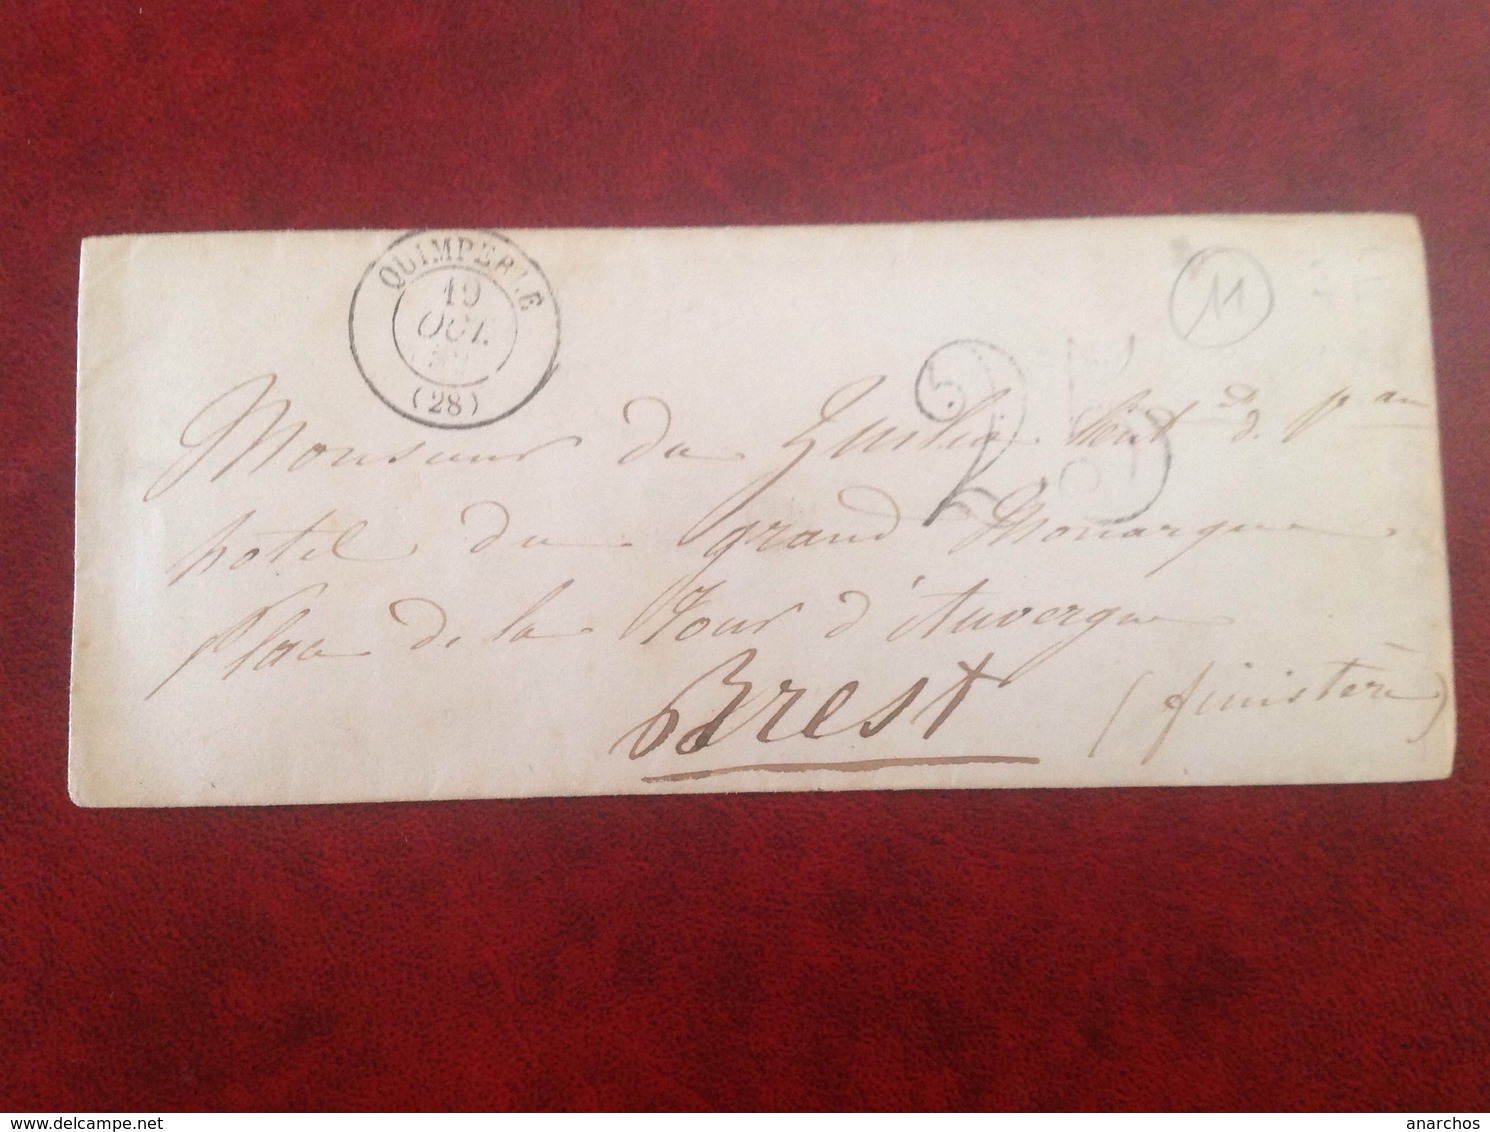 QUIMPERLE
19
OCT.
(28)
11
25
Monsieur du
hotel du grand Monarque
Place de la Tour d'Auvergne
Brest (finistère)
www.delcampe.net
anarchos